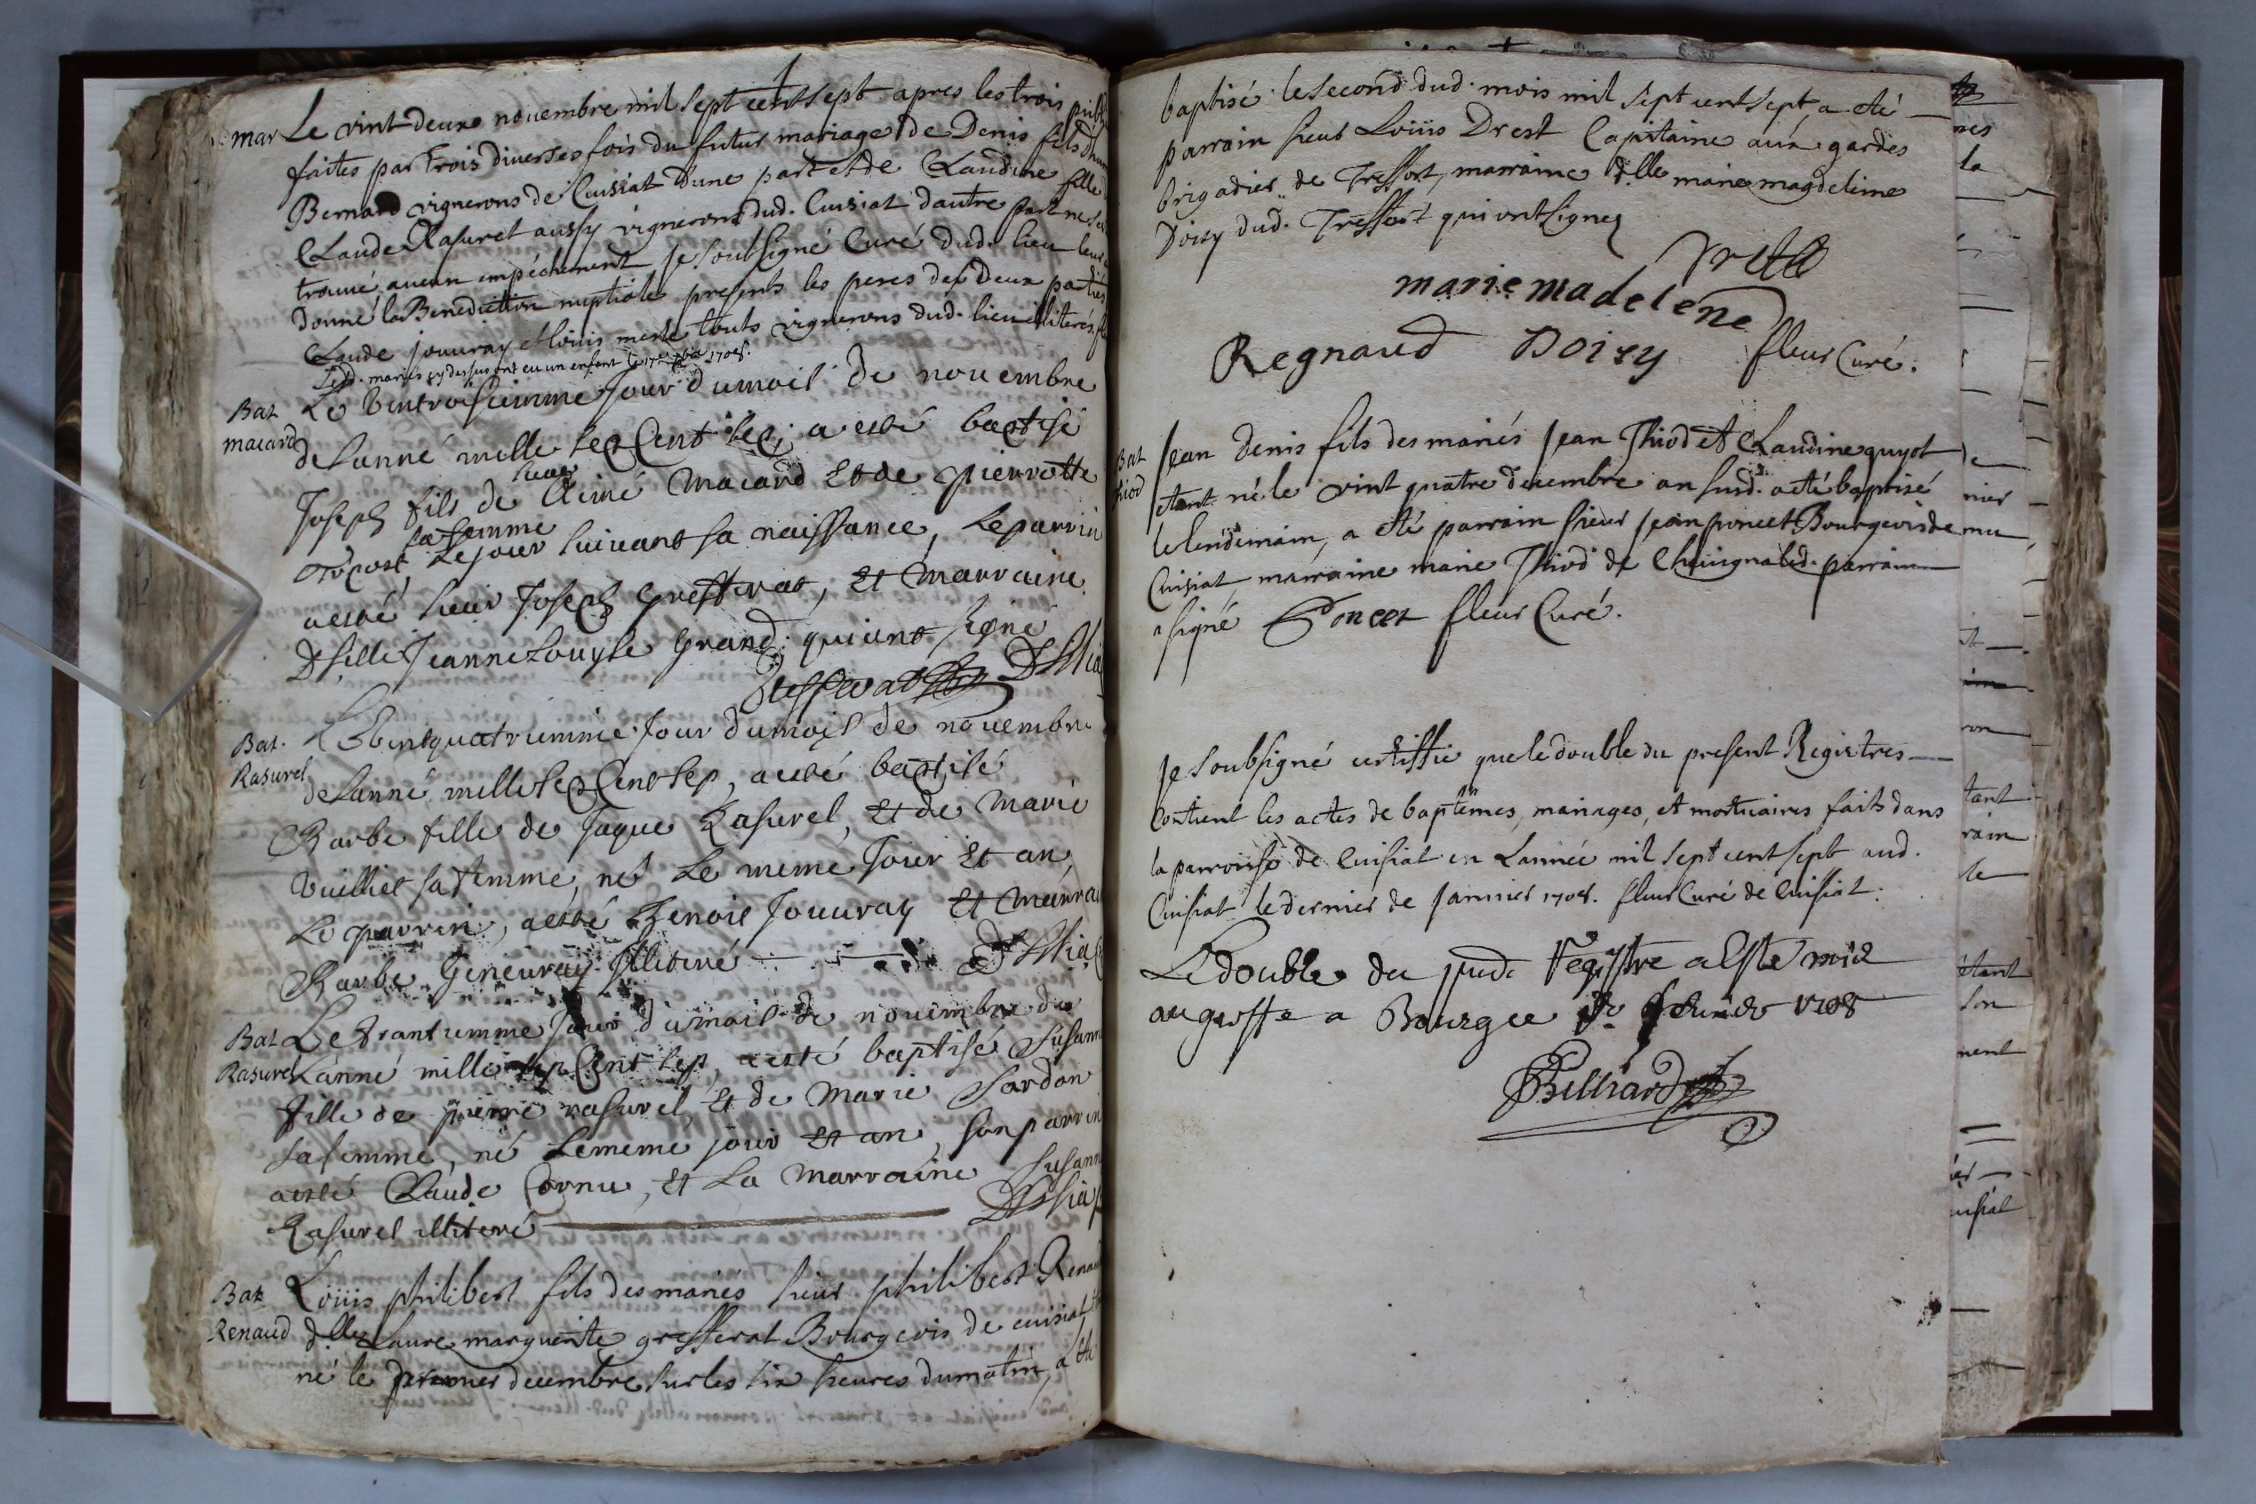 mar Le vint deux novembre mil sept cent sept apres les trois publ
faites par trois diverses fois du futur mariage de Denis fils d'hum
Bernard vignerons de Cuisiat d'une part et de Claudine fille
Claude Rasurel aussy vignerons dud. Cuisiat d'autre part ne s'ét
trouvé aucun empéchement je soubsigné Curé dud. lieu leur
donné la Benediction nuptiale presents les peres des deux parties
Claude jouvray et loüis touts vignerons dud. lieu illiterés
Lesd. mariés cy dessus ont eu un enfant le 17e 1708.
Bat Le vintroisiemme jour du mois de novembre
macard de Lanné mille sep Cent sep, a esté baptisé
Joseph fils de sieur Aimé Macard Et de pierrotte
sa femme Le jour suivant sa naissance, Le parrin
a esté sieur Joseph Grefferat, Et Marraine
Dsille Jeanne Louyse Grand qui ont signé
Grefferat
Bat. Le vintquatriemme Jour du mois de novembre
Rasurel de Lanné mille sep Cent sep, a esté baptisé
Barbe fille de Jaque Rasurel, Et de Marie
Vuilliet sa femme, né Le meme Jour Et an
Le parrin, a esté Benoit Jouvray Et Marra
Barbe Geneuray Illiteré
Bat Le trantiemme Jour du mois de novembre de
Rasurel Lanné mille sep Cent sep, a esté baptisé Susanne
fille de pierre rasurel Et de Marie Sardon
sa femme, né Le meme jour Et an, son parrin
a esté Claude Cornu, Et La Marraine Susann
Rasurel illiteré
Bat Loüis philibert fils des mariés sieur philibert Renau
Renaud d.lle Laure marguerite grefferat Bourgeois de cuisiat
né le premier decembre sur les six heures du matin, a été
baptisé le second dud. mois mil sept cent sept, a été
parrain sieur Loüis Drest Capitaine aux gardes
brigadier de Treffort, marraine d.lle marie magdeleine
Doisy dud. Treffort qui ont signez
marie madelene
Regnaud Doisy fleur Curé.
Bat Jean Denis fils des mariés Jean Thiod et Claudine guyot
thiod etant né le vint quatre decembre an susd. a été baptisé
le lendemain, a été parrain sieur jean poncet Bourgeois de
Cuisiat, marraine marie Thiod de led. parrain
a signé Poncet fleur Curé.
Je soubsigné certiffie que le double du present Registres
Contient les actes de baptêmes, mariages, et mortuaires faits dans
la parroisse de Cuisiat en Lannée mil sept cent sept aud.
Cuisiat le dernier de janvier 1708. fleur Curé de Cuisiat.
Le double du pnt Registre a Esté mis
au greffe a Bourg ce fevrier 1708
Billiard